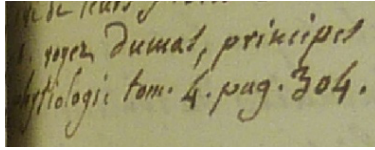 de leurs
1. voyez dumas, principes
physiologie tom. 4. pag. 304.